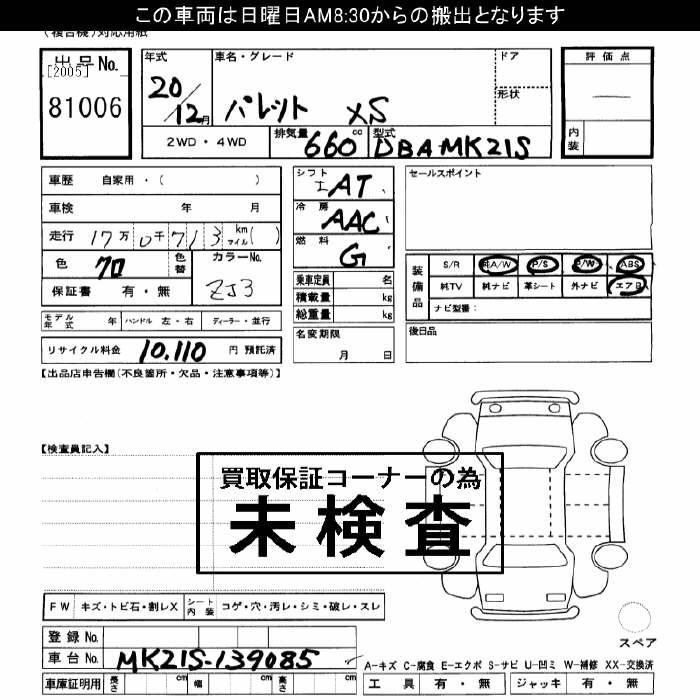 この車両は日曜日AM8:30からの搬出となります
(複合機)対応用紙
出品No. [2005] 81006
年式 20/12月
車名・グレード パレット XS
ドア
形状
評価点
内装
2WD・4WD
排気量 660cc
型式 DBAMK21S
車歴 自家用・( )
車検 年 月
走行 17万0千713 km マイル( )
色 クロ
色替
カラーNo. ZJ3
保証書 有・無
シフト IAT
冷房 AAC
燃料 G
乗車定員 名
積載量 kg
総重量 kg
名変期限 月 日
セールスポイント
装備品
S/R 純A/W P/S P/W ABS
純TV 純ナビ 革シート 外ナビ エアB
ナビ型番:
後日品
モデル年式 年 ハンドル 左・右 ディーラー・並行
リサイクル料金 10,110 円 預託済
【出品店申告欄(不良箇所・欠品・注意事項等)】
【検査員記入】
買取保証コーナーの為
未検査
FW キズ・トビ石・割レX シート内装 コゲ・穴・汚レ・シミ・破レ・スレ
スペア
登録No.
車台No. MK21S-139085
A-キズ C-腐食 E-エクボ S-サビ U-凹ミ W-補修 XX-交換済
車庫証明用 長さ cm 幅 cm 高さ cm
工具 有・無 ジャッキ 有・無